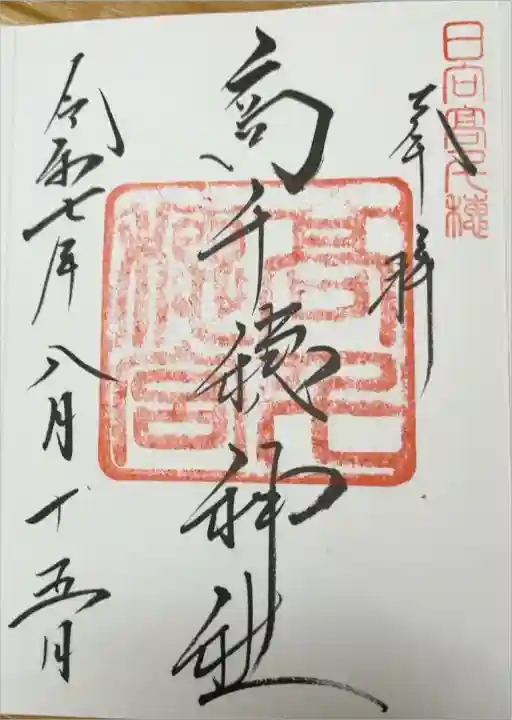 日向髙千穂
奉拝
高千穂神社
令和七年八月十五日